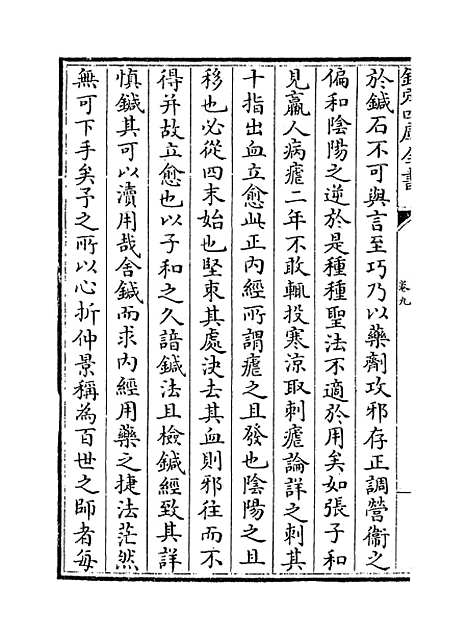 欽定四庫全書
卷九
於鍼石不可與言至巧乃以藥劑攻邪存正調營衞之
偏和陰陽之逆於是種種聖法不適於用矣如張子和
見羸人病瘧二年不敢輒投寒涼取刺瘧論詳之刺其
十指出血立愈此正內經所謂瘧之且發也陰陽之且
移也必從四末始也堅束其處決去其血則邪往而不
得并故立愈也以子和之久諳鍼法且檢鍼經致其詳
慎鍼其可以瀆用哉舍鍼而求內經用藥之捷法茫然
無可下手矣予之所以心折仲景稱為百世之師者每